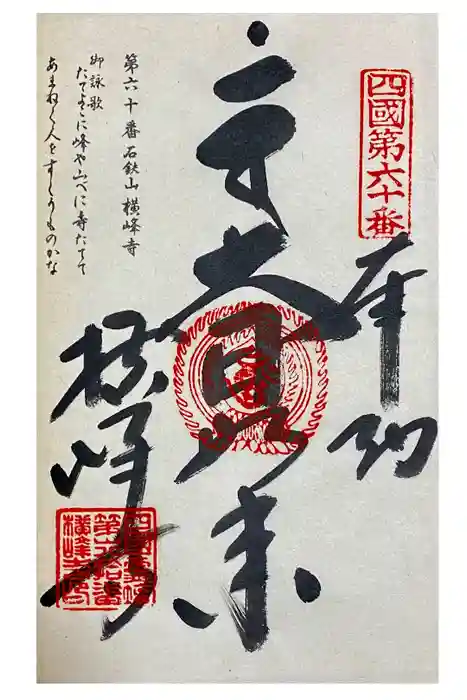 四國第六十番
奉納
大日如来
横峰寺
第六十番 石鈇山 横峰寺
御詠歌
たてよこに峰や山べに寺たてて
あまねく人をすくうものかな